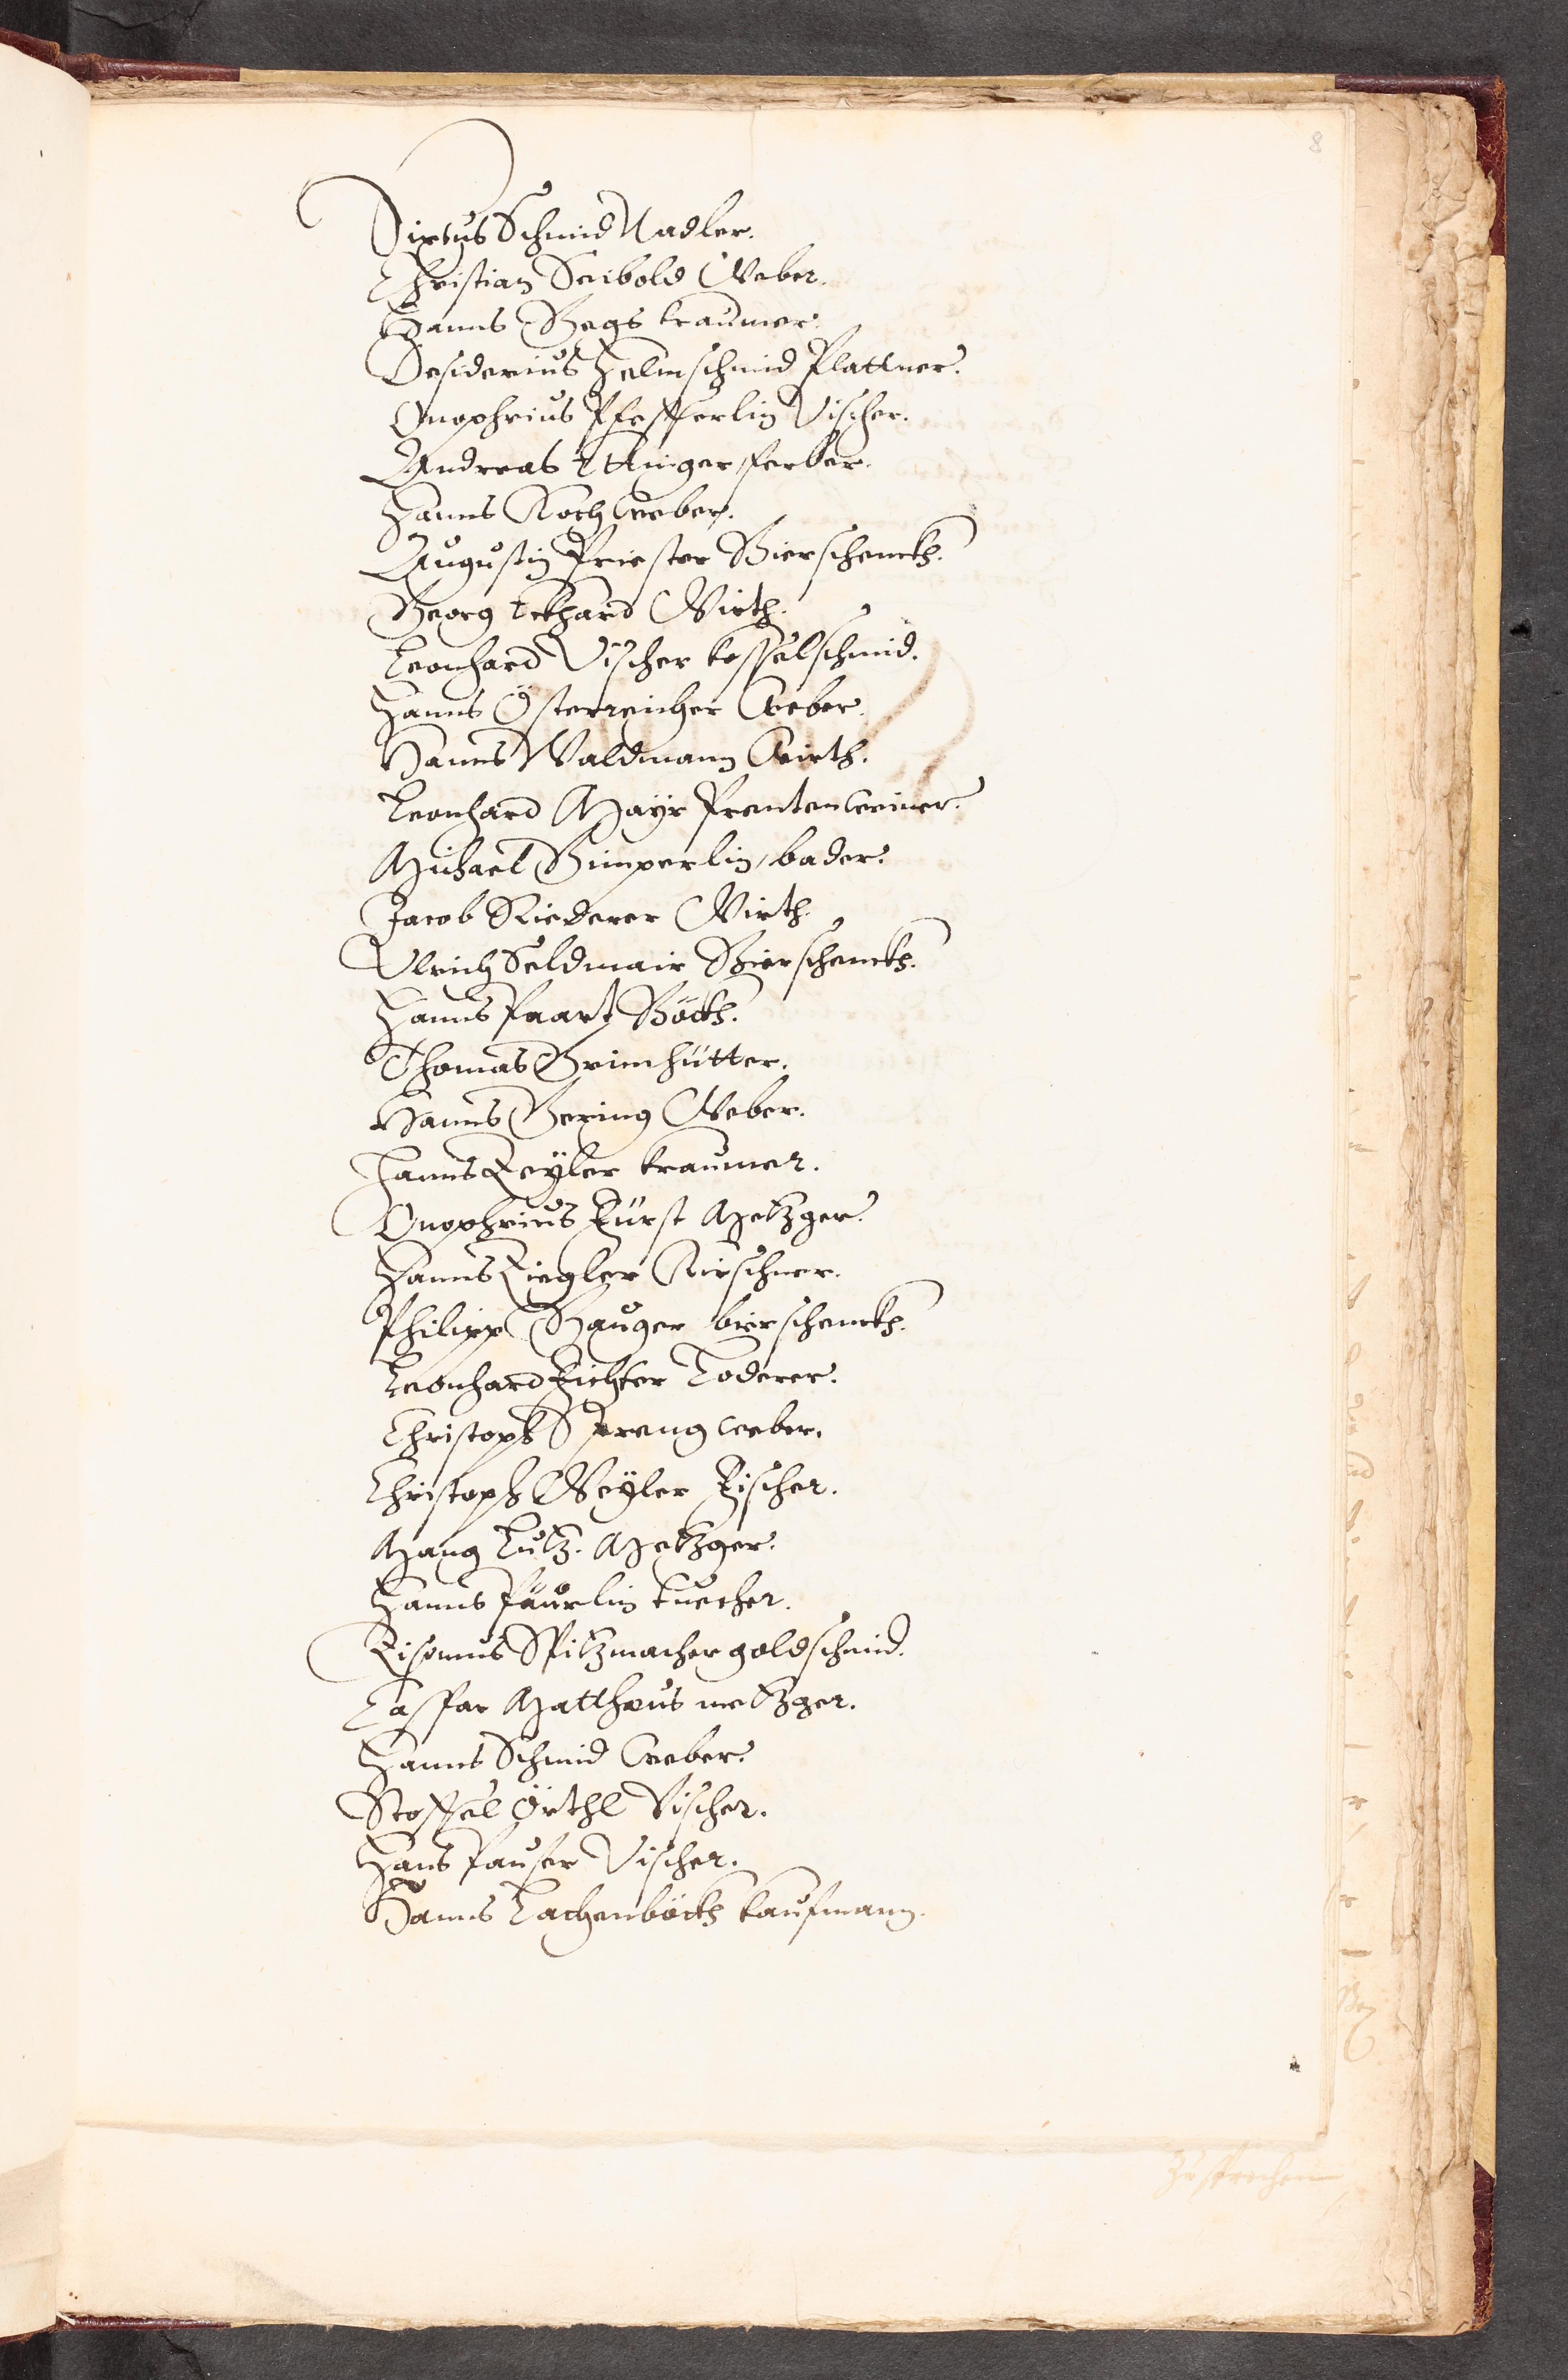 8
Sixtus Schmid Nadler.
Christian Seibold Weber.
Hanns Gegs kraumer.
Desiderius Helmschmid Plattner.
Onophrius Pfefferlin Vischer.
Andreas Ettinger, ferber.
Hanns Koch weber.
Augustin Priester Bierschenckh.
Georg Eckhard Wirth.
Leonhard Vischer kesselschmid.
Hanns Österreicher Weber.
Hanns Waldmann Wirth.
Leonhard Mayr Prentenweiner.
Michael Gimperlin, bader.
Jacob Riederer Wirth.
Ulrich Seldmair Bierschenckh.
Hanns Paart Böckh.
Thomas Grim hütter.
Hanns Gering Weber.
Hanns Zeyler kraumer.
Onophrius Fürst Metzger.
Hanns Ziegler Kirschner.
Philipp Hauger bierschenckh.
Leonhard Richter Loderer.
Christoph Spreng weber.
Christoph Weyler Fischer.
Mang Lutz. Metzger.
Hanns Päurlin tuecher.
Zisomus Spitzmacher goldschmid.
Caspar Mattheus metzger.
Hanns Schmid Weber.
Stoffel Örthl Vischer.
Hans Pauser Vischer.
Hanns Lachenböckh kaufmann.